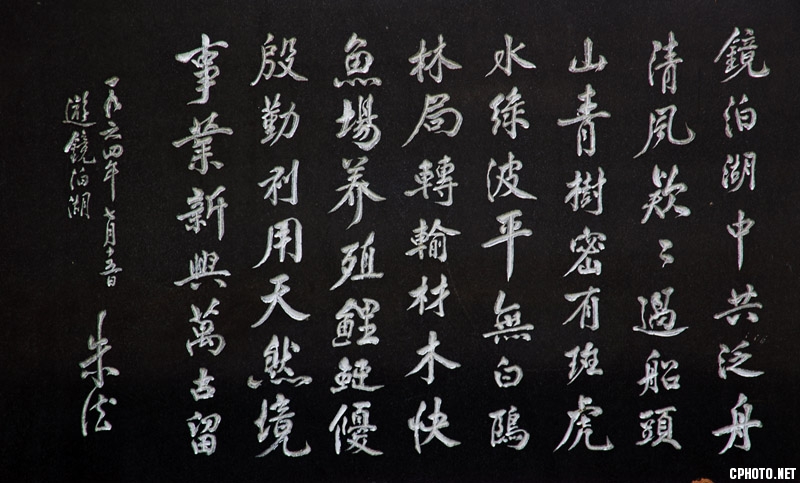 鏡泊湖中共泛舟
清風欵〻過船頭
山青樹密有斑虎
水綠波平無白鷗
林局轉輸材木快
魚場养殖鯉鰱優
殷勤利用天然境
事業新興萬古留
一九六四年七月十五日
遊鏡泊湖
朱德
CPHOTO.NET